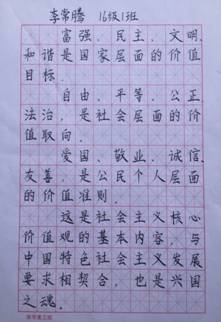 李常腾 16级1班
富强、民主、文明、
和谐是国家层面的价值
目标.
自由、平等、公正
法治,是社会层面的价
值取向.
爱国、敬业、诚信、
友善,是公民个人层面
的价值准则.
这是社会主义核心
价值观的基本内容,与
中国特色社会主义发展
要求相契合,也是兴国
之魂.